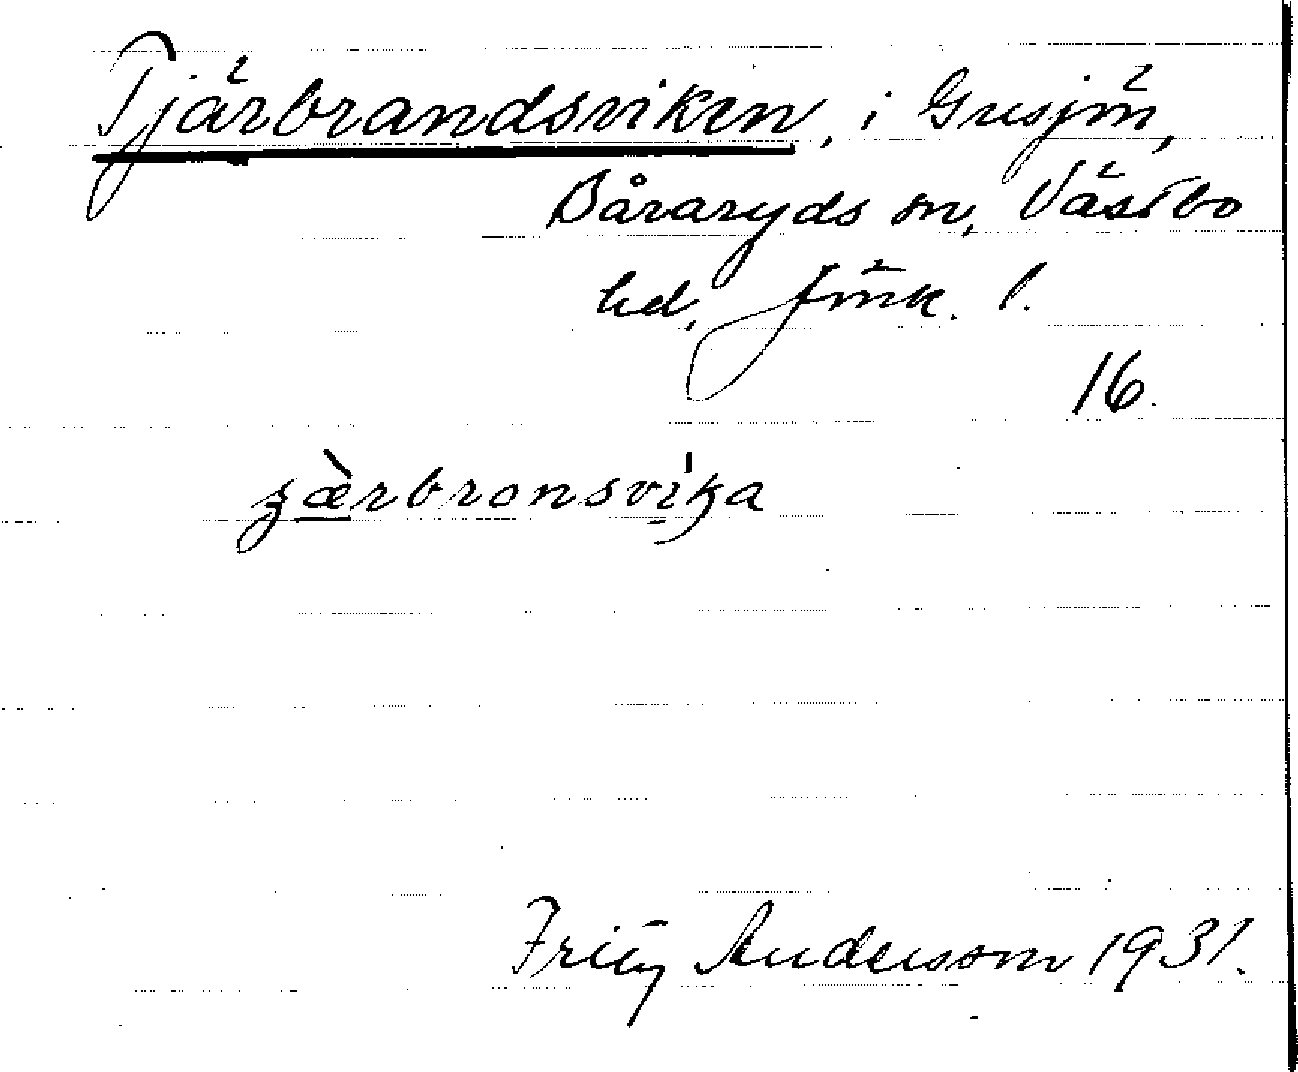 Tjärbrandsviken, i Grusjön,
Båraryds sn, Västbo
hd, Jönk. l.
16.
ʒærbronsvika
Fritz Andersson 1931.